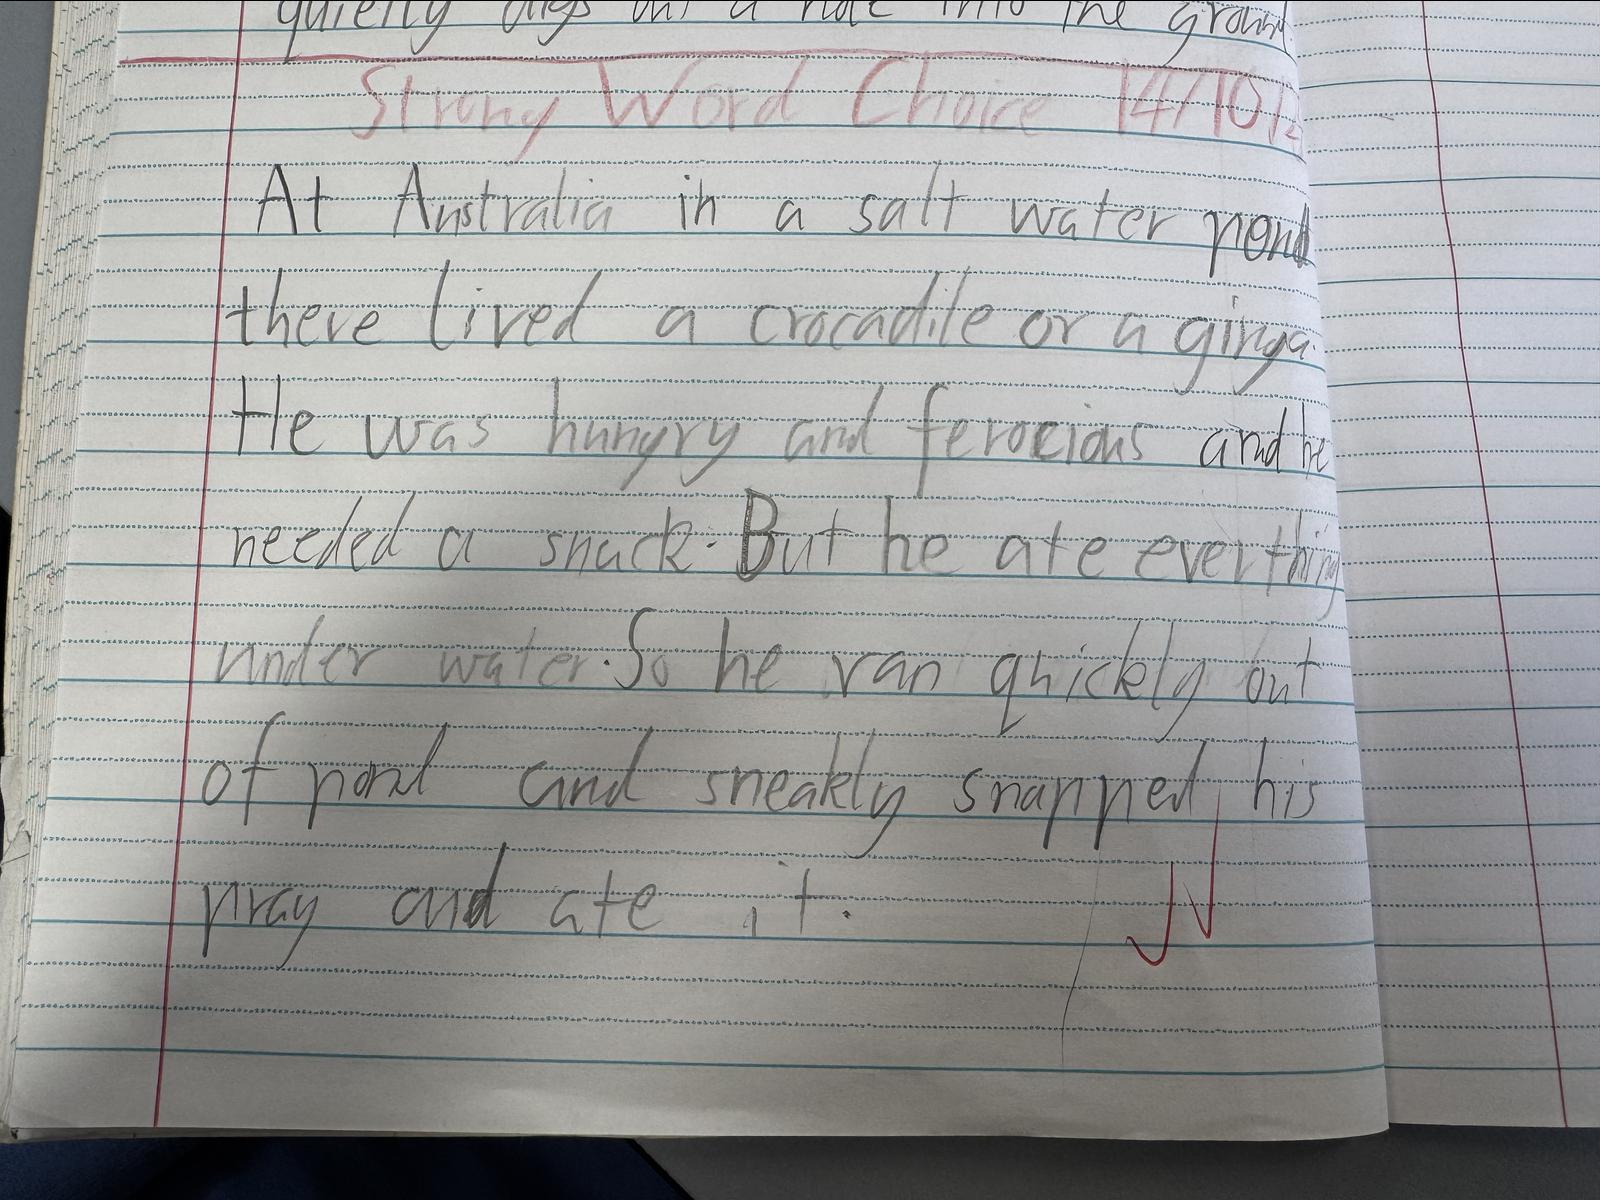 quietly digs out a hole into the ground.
Strong Word Choice 14/10/2
At Australia in a salt water pond
there lived a crocadile or a ginga.
He was hungry and ferocious and he
needed a snack. But he ate everthing
under water. So he ran quickly out
of pond and sneakly snapped his
pray and ate it.